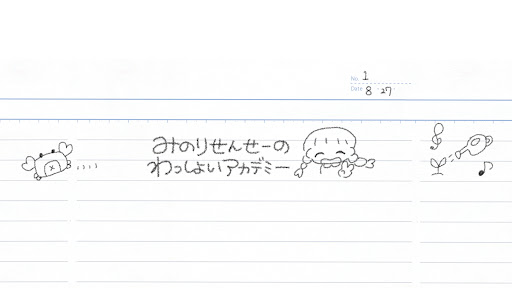 No. 1
Date 8 ・27・
みのりせんせーの
わっしょいアカデミー